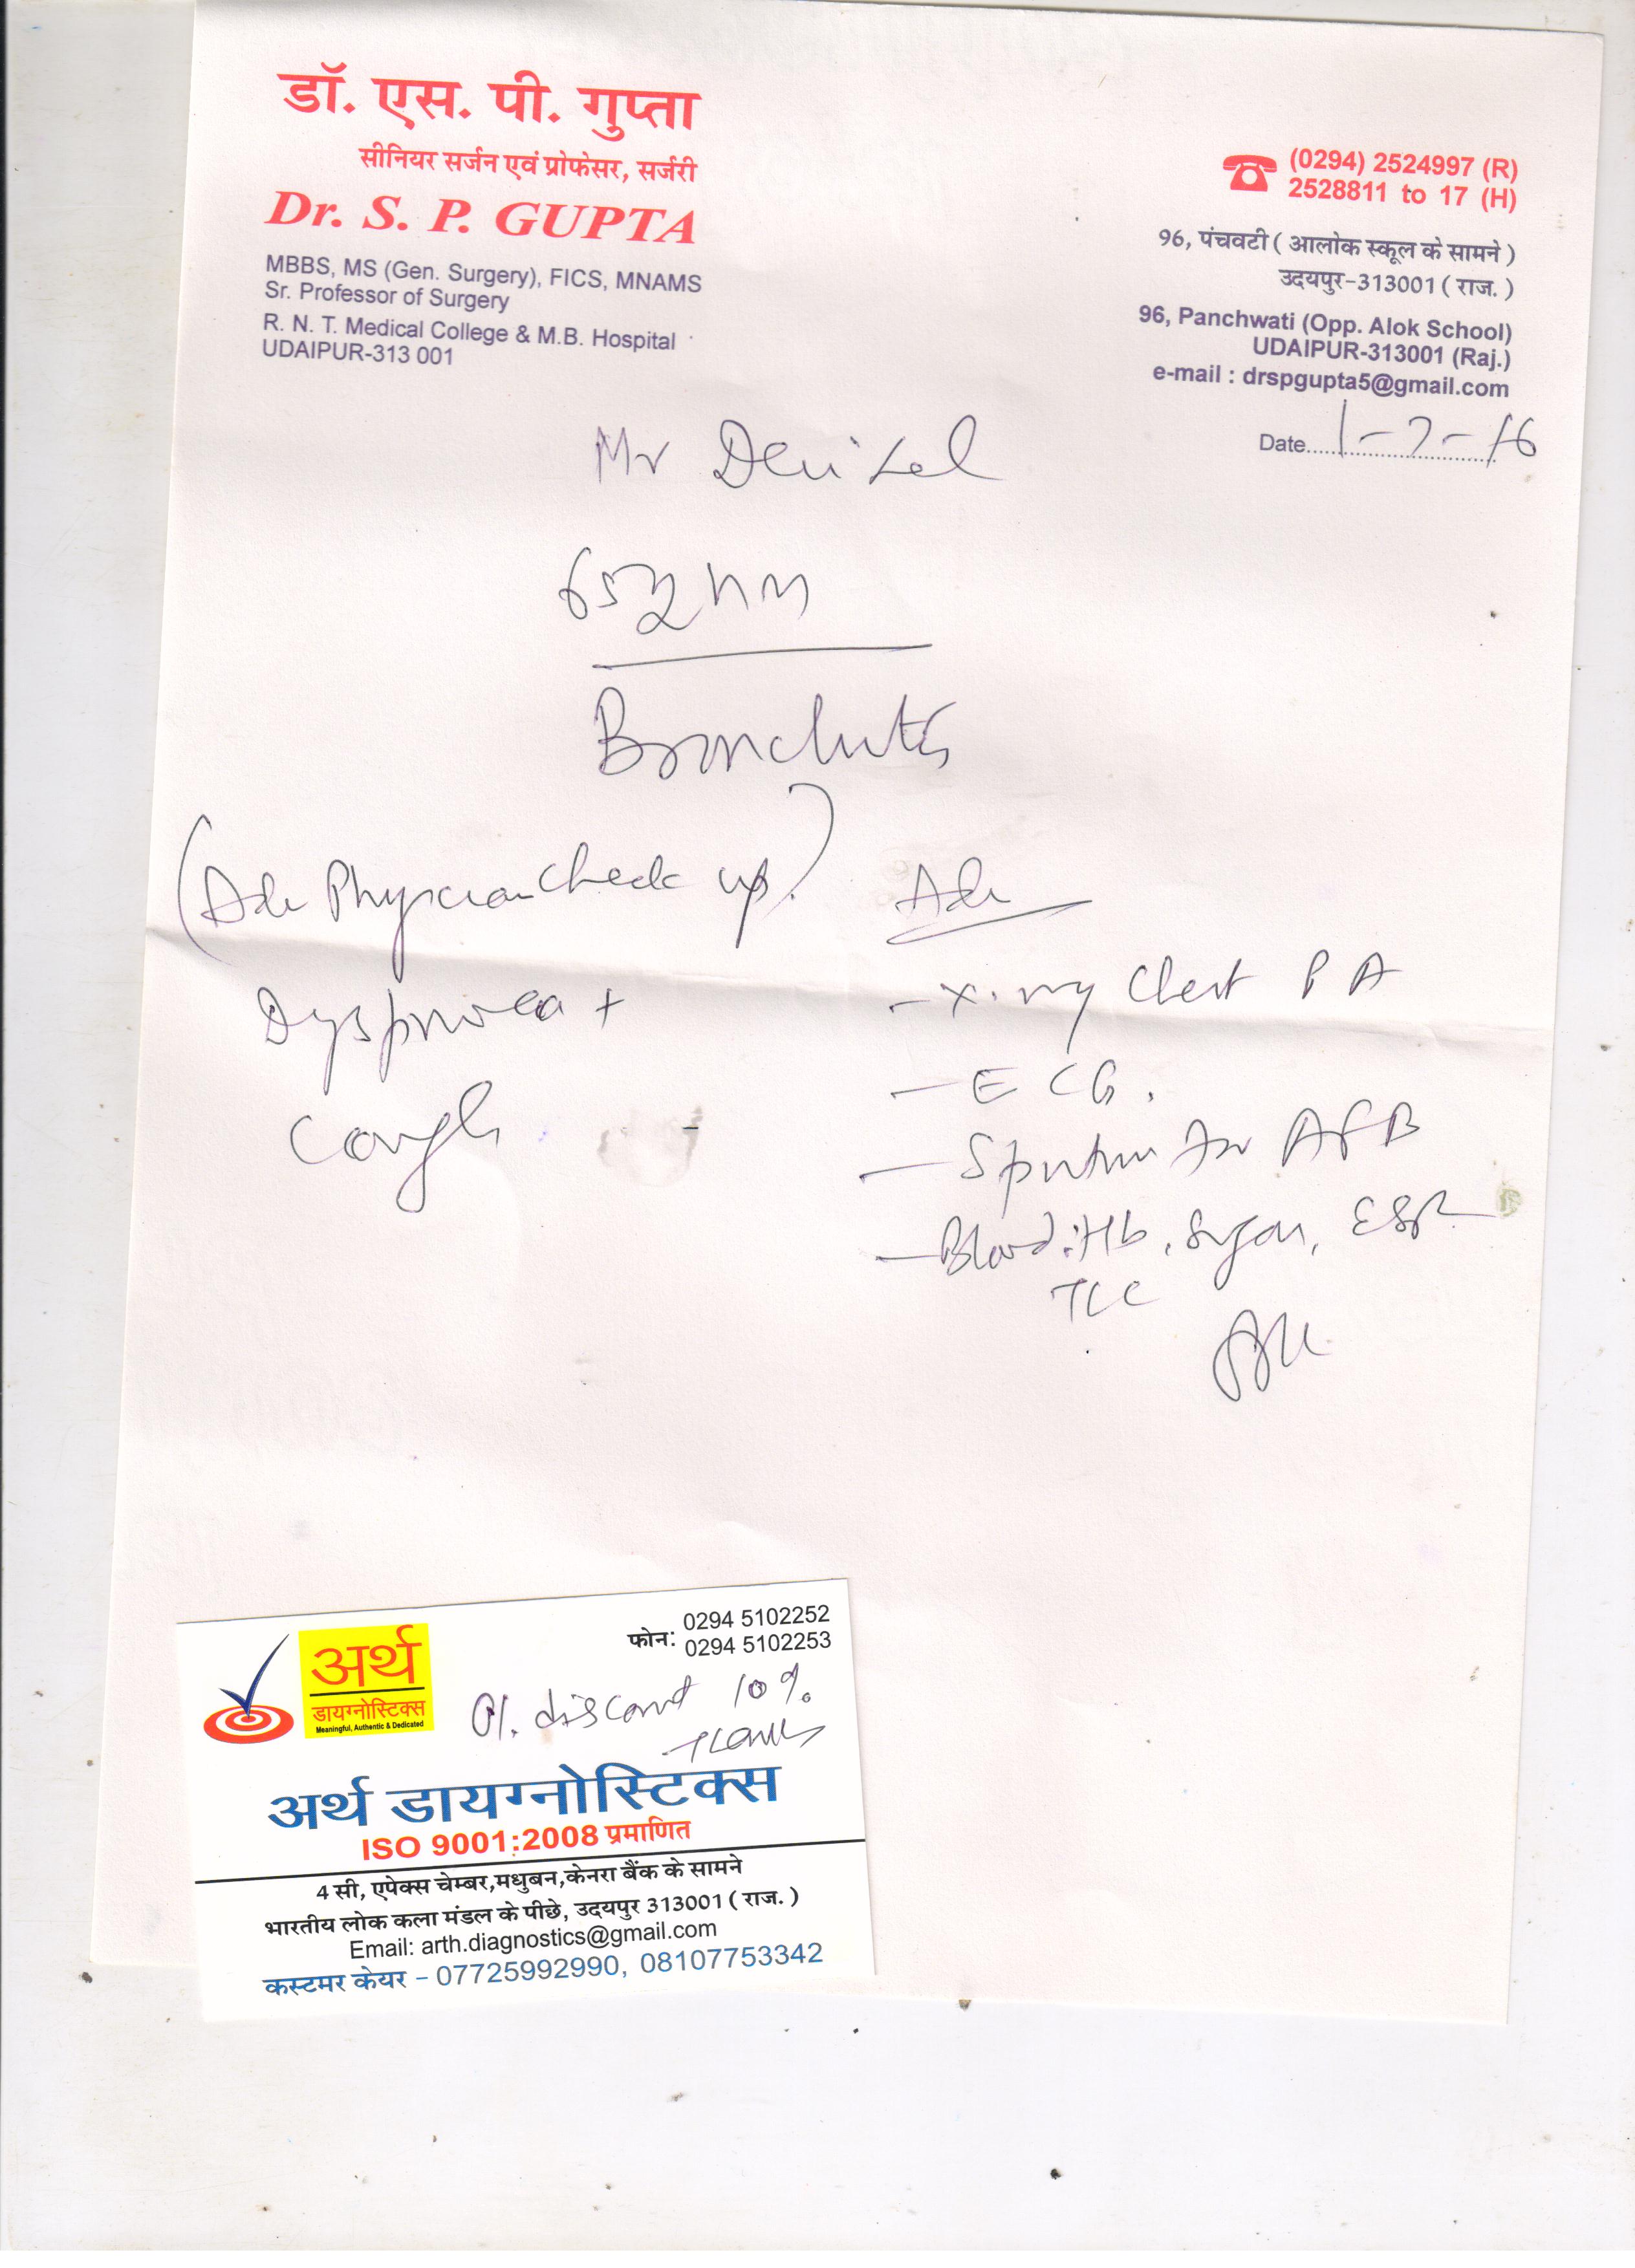 डॉ. एस. पी. गुप्ता
सीनियर सर्जन एवं प्रोफेसर, सर्जरी
Dr. S. P. GUPTA
MBBS, MS (Gen. Surgery), FICS, MNAMS
Sr. Professor of Surgery
R. N. T. Medical College & M.B. Hospital
UDAIPUR-313 001
(0294) 2524997 (R)
2528811 to 17 (H)
96, पंचवटी ( आलोक स्कूल के सामने )
उदयपुर-313001 ( राज. )
96, Panchwati (Opp. Alok School)
UDAIPUR-313001 (Raj.)
e-mail : drspgupta5@gmail.com
Date 1-7-16
Mr
65
Bronchitis
(Adv Physician Check up)
Dyspnoea +
Cough
Adv
- X. ray Chest P A
- E C G.
- Sputum for AFB
- Blood: Hb, Sugar, ESR
TLC
फोन: 0294 5102252
0294 5102253
अर्थ
डायग्नोस्टिक्स
Meaningful, Authentic & Dedicated
Pl. discount 10%
Thanks
अर्थ डायग्नोस्टिक्स
ISO 9001:2008 प्रमाणित
4 सी, एपेक्स चेम्बर,मधुबन,केनरा बैंक के सामने
भारतीय लोक कला मंडल के पीछे, उदयपुर 313001 ( राज. )
Email: arth.diagnostics@gmail.com
कस्टमर केयर - 07725992990, 08107753342